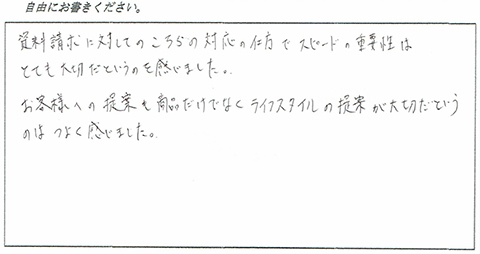 自由にお書きください。
資料請求に対してのこちらの対応の仕方でスピードの重要性は
とても大切だというのを感じました。
お客様への提案も商品だけでなくライフスタイルの提案が大切だという
のはつよく感じました。